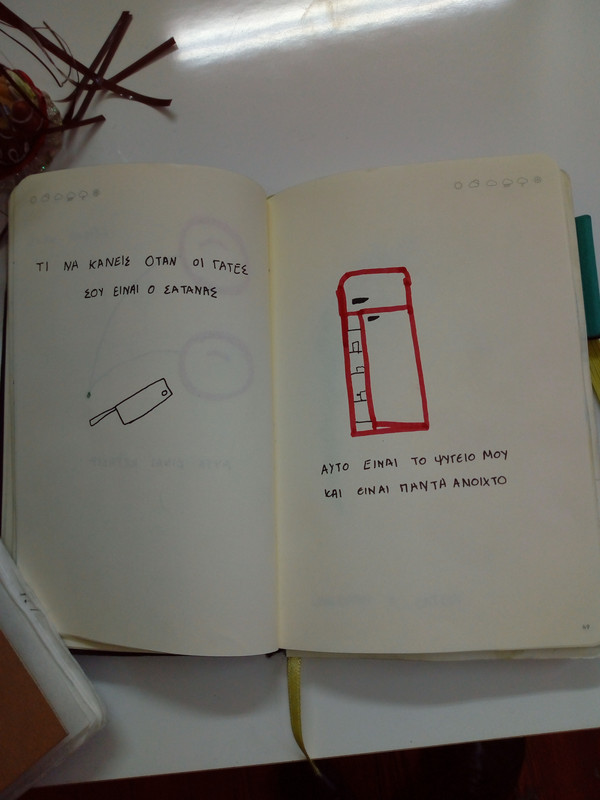 ΤΙ ΝΑ ΚΑΝΕΙΣ ΟΤΑΝ ΟΙ ΓΑΤΕΣ
ΣΟΥ ΕΙΝΑΙ Ο ΣΑΤΑΝΑΣ
ΑΥΤΟ ΕΙΝΑΙ ΤΟ ΨΥΓΕΙΟ ΜΟΥ
ΚΑΙ ΕΙΝΑΙ ΠΑΝΤΑ ΑΝΟΙΧΤΟ